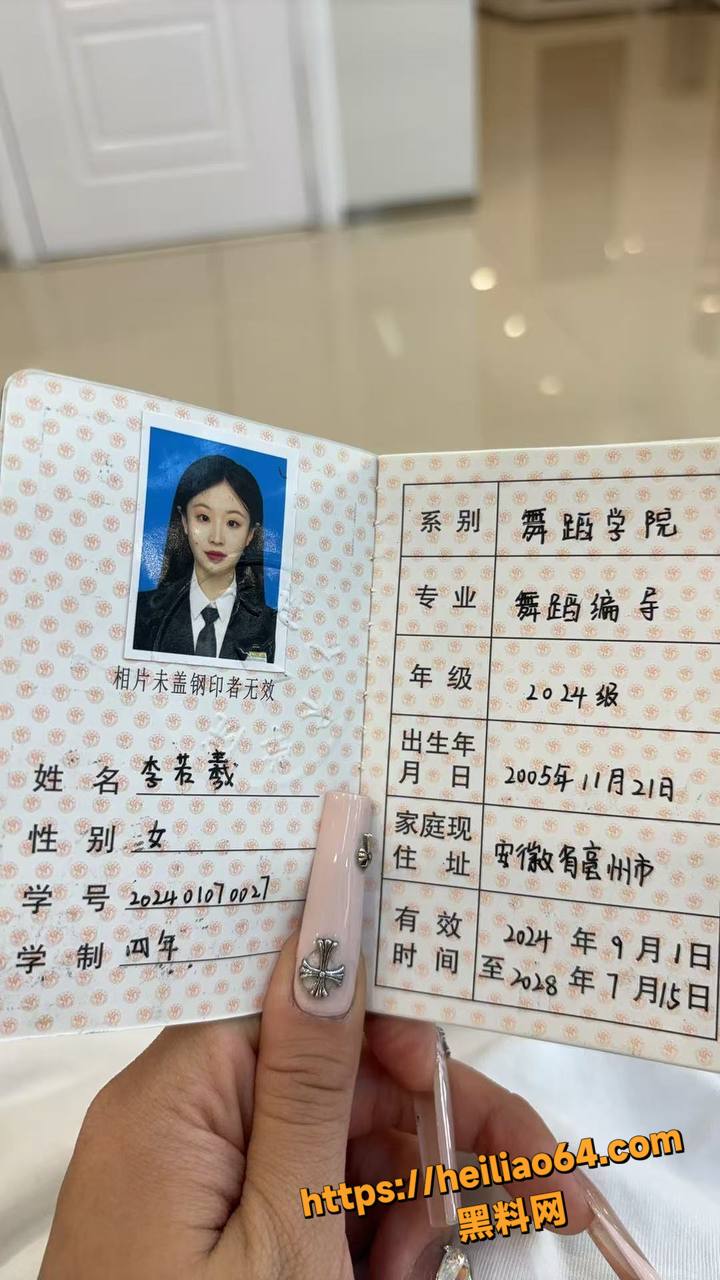 相片未盖钢印者无效
姓名 李若羲
性别 女
学号 202401070027
学制 四年
系别 舞蹈学院
专业 舞蹈编导
年级 2024级
出生年
月日 2005年11月21日
家庭现
住址 安徽省亳州市
有效 2024年9月1日
时间 至2028年7月15日
https://heiliao64.com
黑料网